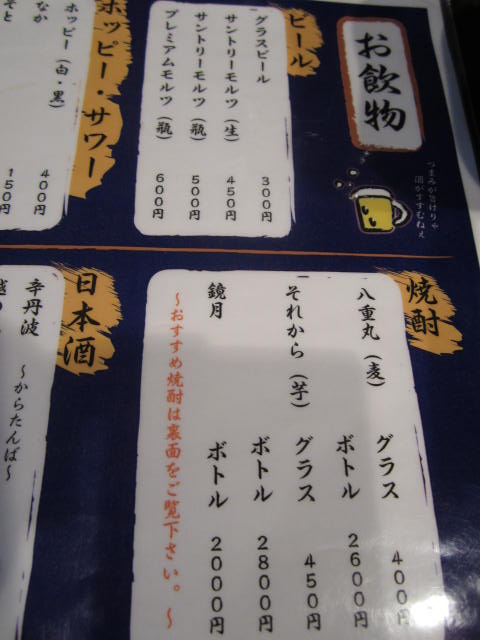 お飲物
つまみが旨けりゃ
酒がすすむねぇ
ビール
グラスビール 300円
サントリーモルツ（生） 450円
サントリーモルツ（瓶） 500円
プレミアムモルツ（瓶） 600円
ホッピー・サワー
ホッピー（白・黒） 400円
なか 150円
そと
焼酎
八重丸（麦） グラス 400円
ボトル 2600円
それから（芋） グラス 450円
ボトル 2800円
鏡月 ボトル 2000円
～おすすめ焼酎は裏面をご覧下さい。～
日本酒
辛丹波 ～からたんば～